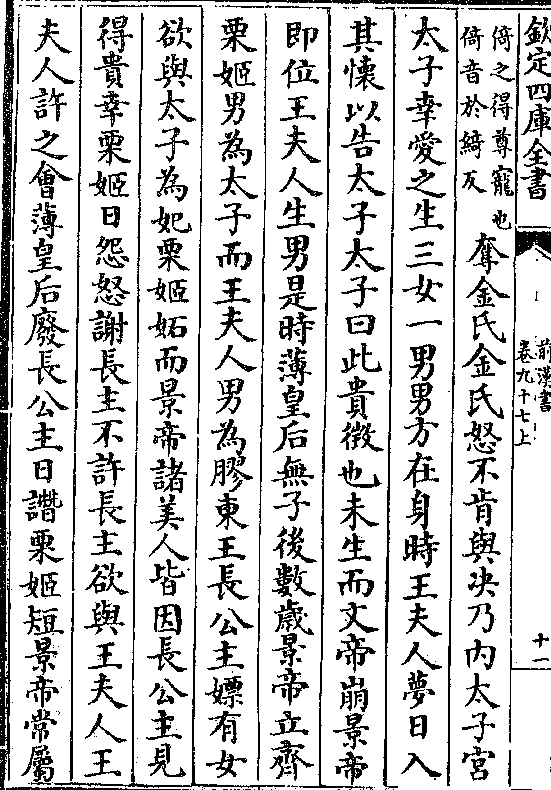 欽定四庫全書
前漢書
卷九十七上
十一
倚之得尊寵也
倚音於綺反
奪金氏金氏怒不肯與决乃内太子宮
太子幸愛之生三女一男男方在身時王夫人夢日入
其懷以告太子太子曰此貴徴也未生而文帝崩景帝
即位王夫人生男是時薄皇后無子後數歲景帝立齊
栗姬男為太子而王夫人男為膠東王長公主嫖有女
欲與太子為妃栗姬妬而景帝諸美人皆因長公主見
得貴幸栗姬日怨怒謝長主不許長主欲與王夫人王
夫人許之會薄皇后廢長公主日譖栗姬短景帝常屬